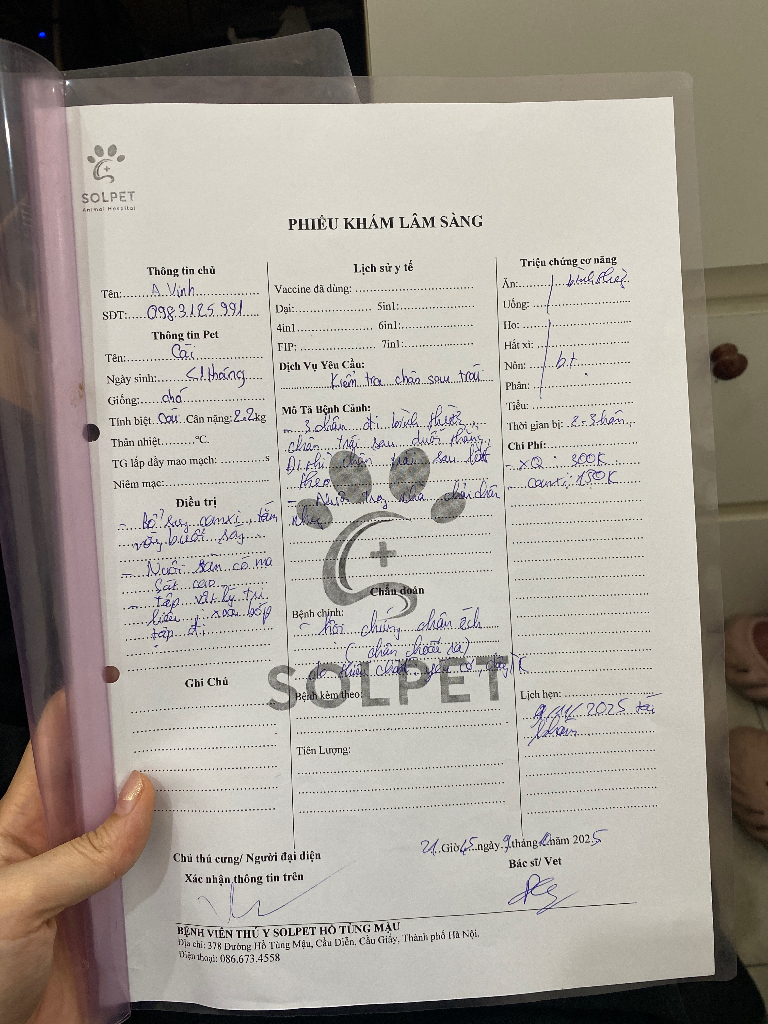 SOLPET
Animal Hospital
PHIẾU KHÁM LÂM SÀNG
Thông tin chủ
Tên: A Vinh
SĐT: 0983.125.991
Thông tin Pet
Tên: Cái
Ngày sinh: <1 tháng
Giống: chó
Tính biệt Cái Cân nặng: 2.2kg
Thân nhiệt °C.
TG lấp đầy mao mạch: s
Niêm mạc:
Điều trị
- Bổ sung canxi, tắm
nắng buổi sáng
- Nuôi sàn có ma
sát cao
- Tập vật lý trị
liệu, xoa bóp
tập đi
Ghi Chú
Lịch sử y tế
Vaccine đã dùng:
Dại: 5in1:
4in1 6in1:
FIP: 7in1:
Dịch Vụ Yêu Cầu:
Kiểm tra chân sau trái
Mô Tả Bệnh Cảnh:
- 3 chân đi bình thường,
chân trái sau duỗi thẳng,
Đi thì chân sau
theo
- Nuôi trong nhà
Chẩn đoán
Bệnh chính:
- hội chứng chân ếch
(chân choãi ra)
do thiếu chất, yếu cơ,
SOLPET
Bệnh kèm theo:
Tiên Lượng:
Triệu chứng cơ năng
Ăn: bình thường
Uống:
Ho:
Hắt xì:
Nôn: b.t
Phân:
Tiểu:
Thời gian bị: 2-3 tuần
Chi Phí:
- XQ: 300K
- canxi: 150K
Lịch hẹn:
9/11/2025 tái
khám
21 Giờ 45 ngày 9 tháng năm 2025
Chủ thú cưng/ Người đại diện
Xác nhận thông tin trên
Bác sĩ/ Vet
BỆNH VIỆN THÚ Y SOLPET HỒ TÙNG MẬU
Địa chỉ: 378 Đường Hồ Tùng Mậu, Cầu Diễn, Cầu Giấy, Thành phố Hà Nội.
Điện thoại: 086.673.4558